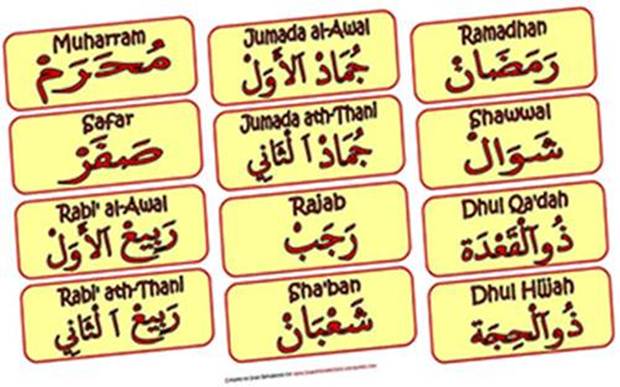 Muharram
مُحَرَمْ
Safar
صَفَرْ
Rabi' al-Awal
رَبِيعْ الأَوَلْ
Rabi' ath-Thani
رَبِيعْ اَ لْثَانِي
Jumada al-Awal
جُمَادْ الأَوَلْ
Jumada ath-Thani
جُمَادْ اَ لْثَانِي
Rajab
رَجَبْ
Sha'ban
شَعْبَانْ
Ramadhan
رَمَضَانْ
Shawwal
شَوَالْ
Dhul Qa'dah
ذُوالْقَعْدَة
Dhul Hijjah
ذُوالْحِجَة